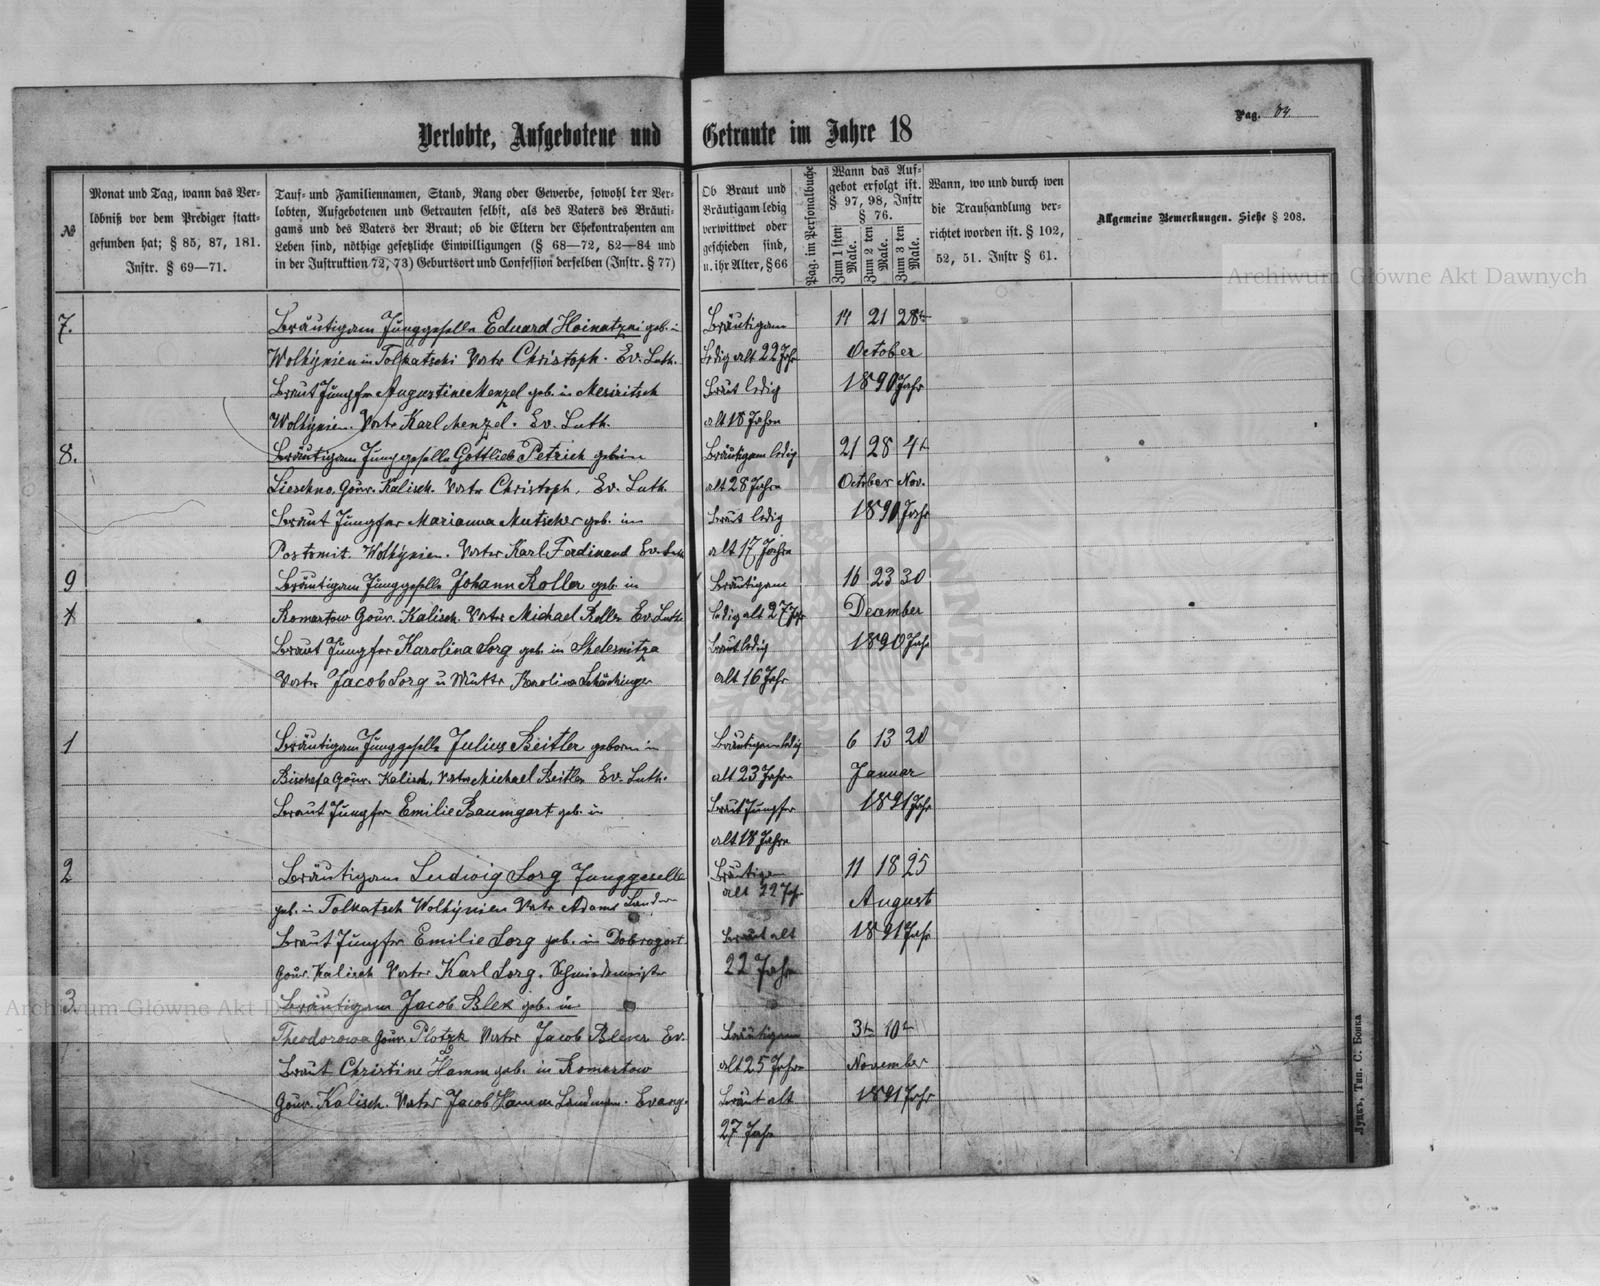 Pag. 34.
Verlobte, Aufgebotene und Getraute im Jahre 18
№
Monat und Tag, wann das Ver-
löbniß vor dem Prediger statt-
gefunden hat; § 85, 87, 181.
Instr. § 69—71.
Tauf- und Familiennamen, Stand, Rang oder Gewerbe, sowohl der Ver-
lobten, Aufgebotenen und Getrauten selbst, als des Vaters des Bräuti-
gams und des Vaters der Braut; ob die Eltern der Ehekontrahenten am
Leben sind, nöthige gesetzliche Einwilligungen (§ 68—72, 82—84 und
in der Justruktion 72, 73) Geburtsort und Confession derselben (Instr. § 77)
Ob Braut und
Bräutigam ledig
verwittwet oder
geschieden sind,
u. ihr Alter, § 66
Pag. im Personalbuche
Wann das Auf-
gebot erfolgt ist.
§ 97, 98, Instr
§ 76.
Zum 1 sten Male.
Zum 2 ten Male.
Zum 3 ten Male.
Wann, wo und durch wen
die Trauhandlung ver-
richtet worden ist. § 102,
52, 51. Instr § 61.
Allgemeine Bemerkungen. Siehe § 208.
Archiwum Główne Akt Dawnych
7. Bräutigam Junggeselle Eduard Hoinatzki geb. in Bräutigam 14 21 28t
Wolhÿnien in Tolkatschi Vater Christoph. Ev. Luth. Ledig alt 22 Jahr October
Braut Jungfer Augustine Menzel geb. in Mesiritsch Braut ledig 1890 Jahr
Wolhÿnien. Vater Karl Menzel. Ev. Luth. alt 18 Jahre
8. Bräutigam Junggeselle Gottlieb Petrich geb. in Bräutigam ledig 21 28 4t
Lieschno. Gouv. Kalisch. Vater Christoph, Ev. Luth. alt 28 Jahre October Nov.
Braut Jungfer Marianna Mutscher geb. in Braut ledig 1890 Jahr
Postomit. Wolhÿnien. Vater Karl Ferdinand Ev. Luth alt 17 Jahre
9 Bräutigam Junggeselle Johann Roller geb. in Bräutigam 16 23 30
Komartow Gouv. Kalisch. Vater Michael Roller Ev. Luth. ledig alt 27 Jahr December
Braut Jungfer Karolina Sorg geb. in Shelesnitza Braut ledig 1890 Jahr
Vater Jacob Sorg u Mutter Karolina Schächinger alt 16 Jahr
1 Bräutigam Junggeselle Julius Beitler geboren in Bräutigam ledig 6 13 20
Bischefa Gouv. Kalisch. Vater Michael Beitler Ev. Luth. alt 23 Jahre Januar
Braut Jungfer Emilie Baumgart geb. in Braut Jungfer 1891 Jahr
alt 18 Jahre
2 Bräutigam Ludwig Sorg Junggeselle Bräutigam 11 18 25
geb. in Tolkatsch Wolhÿnien Vater Adam alt 22 Jahr August
Braut Jungfer Emilie Sorg geb. in Dobrogost Braut alt 1891 Jahr
Gouv. Kalisch Vater Karl Sorg. Schmiedemeister 22 Jahr
3. Bräutigam Jacob Blek geb. in
Theodorowa Gouv. Plotzk Vater Jacob Ev. Bräutigam 3t 10t
Braut Christine Hamm geb. in Komartow alt 25 Jahre November
Gouv. Kalisch. Vater Jacob Hamm Landmann. Evang. Braut alt 1891 Jahr
27 Jahr
Archiwum Główne Akt Dawnych
Луцкъ, Тип. С. Бонка